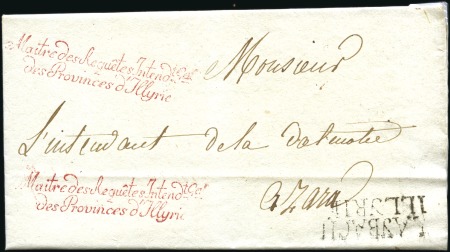 Maitre des Requêtes, Intendt. Gal.
des Provinces d'Illyrie
Monsieur
L'intendant de la dalmatie
Maitre des Requêtes, Intendt. Gal.
des Provinces d'Illyrie
a Zara
LAYBACH
ILLYRIE